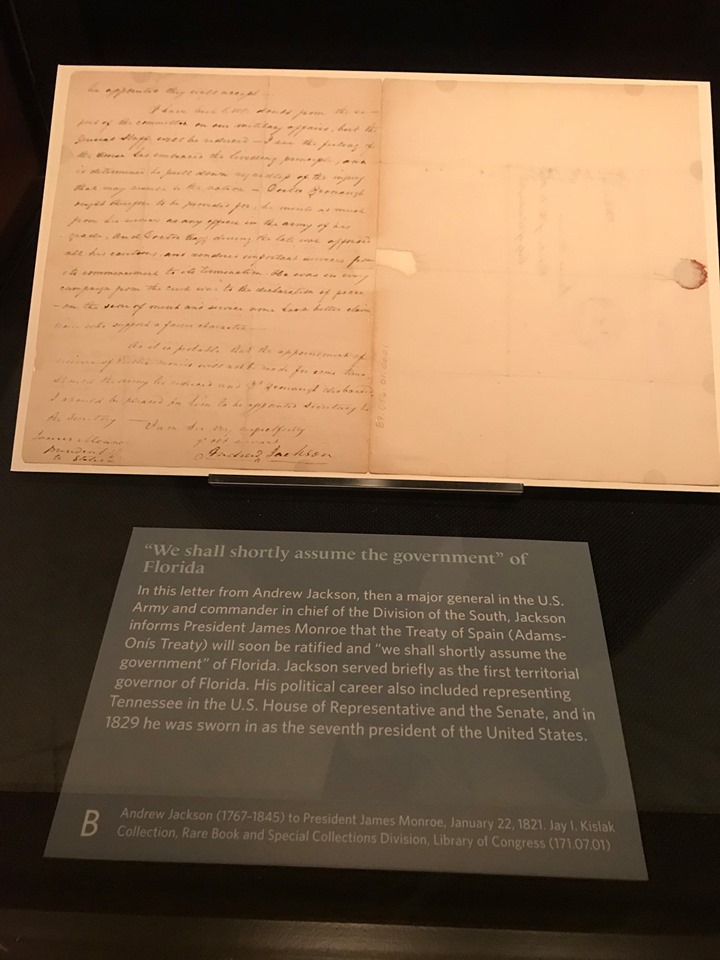 be appointed they will accept —
I have but little doubt from the re-
port of the committee on our military affairs, but the
General Staff will be reduced — I see the feeling of
the house has embraced the levelling principle, and
is determined to pull down regardless of the injury
that may accrue to the nation — Doctor Bronaugh
ought therefore to be provided for, he merits as much
from his services as any officer in the army of his
grade. And Doctor during the late war appeared
all his and rendered important services from
its commencement to its termination. He was in every
campaign from the creek war to the declaration of peace
— on the score of merit and service none has a better claim
nor who support a fairer character —
As it is probable that the appointment of
of Public monies will not be made for some time
the army be reduced and Dr Bronaugh disbanded
I should be pleased for him to be appointed secretary to
the
I am Sir very respectfully
yr obt servant
James Monroe
President U.
States
Andrew Jackson
89.076.01.0001
"We shall shortly assume the government" of
Florida
In this letter from Andrew Jackson, then a major general in the U.S.
Army and commander in chief of the Division of the South, Jackson
informs President James Monroe that the Treaty of Spain (Adams-
Onís Treaty) will soon be ratified and "we shall shortly assume the
government" of Florida. Jackson served briefly as the first territorial
governor of Florida. His political career also included representing
Tennessee in the U.S. House of Representative and the Senate, and in
1829 he was sworn in as the seventh president of the United States.
B
Andrew Jackson (1767–1845) to President James Monroe, January 22, 1821. Jay I. Kislak
Collection, Rare Book and Special Collections Division, Library of Congress (171.07.01)